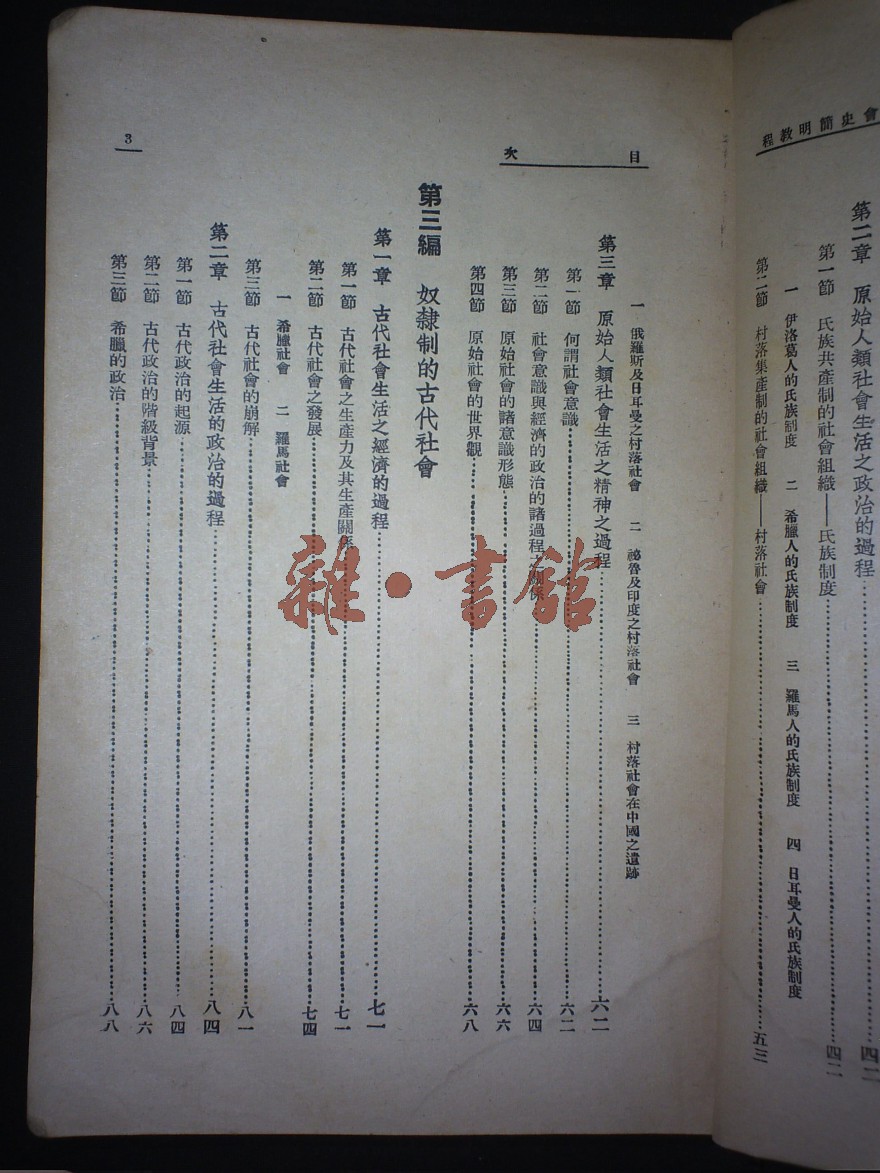 會史簡明教程
第二章　原始人類社會生活之政治的過程……四二
第一節　氏族共產制的社會組織——氏族制度……四二
一　伊洛葛人的氏族制度　二　希臘人的氏族制度　三　羅馬人的氏族制度　四　日耳曼人的氏族制度
第二節　村落集產制的社會組織——村落社會……五三
目次
一　俄羅斯及日耳曼之村落社會　二　祕魯及印度之村落社會　三　村落社會在中國之遺跡
第三章　原始人類社會生活之精神之過程……六二
第一節　何謂社會意識……六二
第二節　社會意識與經濟的政治的諸過程之關係……六四
第三節　原始社會的諸意識形態……六六
第四節　原始社會的世界觀……六八
第三編　奴隸制的古代社會
第一章　古代社會生活之經濟的過程……七一
第一節　古代社會之生產力及其生產關係……七一
第二節　古代社會之發展……七四
一　希臘社會　二　羅馬社會
第三節　古代社會的崩解……八一
第二章　古代社會生活的政治的過程……八四
第一節　古代政治的起源……八四
第二節　古代政治的階級背景……八六
第三節　希臘的政治……八八
3
雜·書館